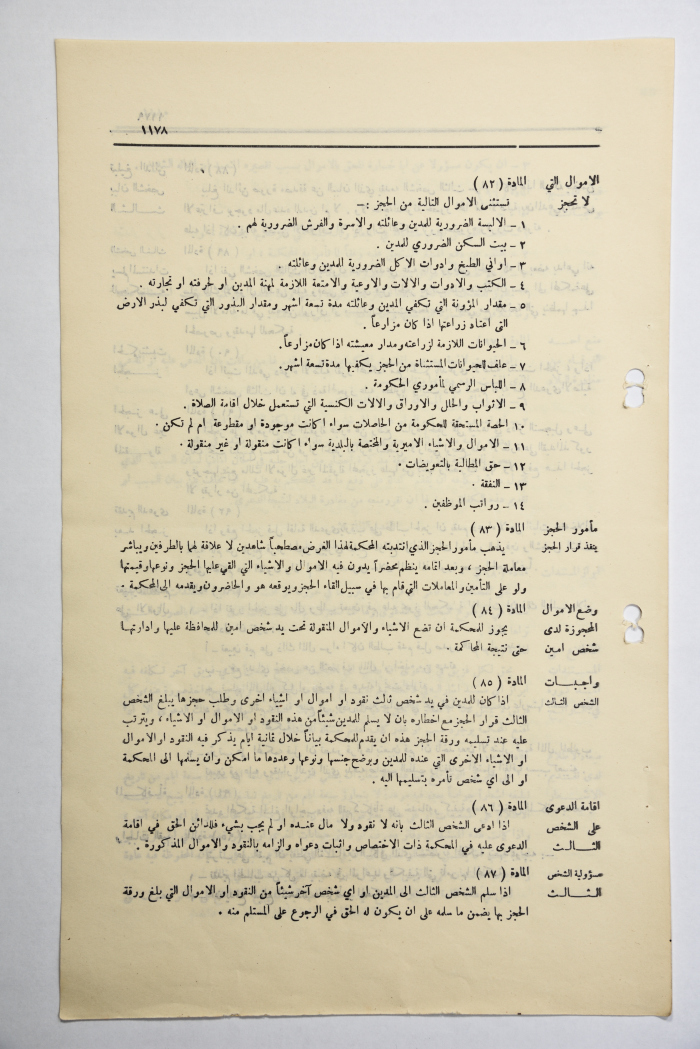 ١١٧٨
الاموال التي المادة ( ٨٢ )
لا تحجز تستثنى الاموال التالية من الحجز :ـ
١ ـ الالبسة الضرورية للمدين وعائلته والاسرة والفرش الضرورية لهم .
٢ ـ بيت السكن الضروري للمدين .
٣ ـ اواني الطبخ وادوات الاكل الضرورية للمدين وعائلته .
٤ ـ الكتب والادوات والالات والاوعية والامتعة اللازمة لمهنة المدين او لحرفته او تجارته .
٥ ـ مقدار المؤونة التي تكفي المدين وعائلته مدة تسعة اشهر ومقدار البذور التي تكفي لبذر الارض
التى اعتاد زراعتها اذا كان مزارعاً .
٦ ـ الحيوانات اللازمة لزراعته ومدار معيشته اذا كان مزارعاً .
٧ ـ علف للحيوانات المستثناة من الحجز يكفيها مدة تسعة اشهر .
٨ ـ اللباس الرسمي لمأموري الحكومة .
٩ ـ الاثواب والحلل والاوراق والالات الكنسية التي تستعمل خلال اقامة الصلاة .
١٠ الحصة المستحقة للحكومة من الحاصلات سواء اكانت موجودة او مقطوعة ام لم تكن .
١١ ـ الاموال والاشياء الاميرية والمختصة بالبلدية سواء اكانت منقولة او غير منقولة .
١٢ ـ حق المطالبة بالتعويضات .
١٣ ـ النفقة .
١٤ ـ رواتب الموظفين .
مأمور الحجز المادة ( ٨٣ )
ينفذ قرار الحجز يذهب مأمور الحجز الذي انتدبته المحكمة لهذا الغرض مصطحباً شاهدين لا علاقة لهما بالطرفين ويباشر
معاملة الحجز ، وبعد اتمامه ينظم محضراً يدون فيه الاموال والاشياء التي القي عليها الحجز ونوعها وقيمتها
ولو على التأمين والمعاملات التي قام بها في سبيل القاء الحجز ويوقعه هو والحاضرون ويقدمه الى المحكمة .
وضع الاموال المادة ( ٨٤ )
المحجوزة لدى يجوز للمحكمة ان تضع الاشياء والاموال المنقولة تحت يد شخص امين للمحافظة عليها وادارتها
شخص امين حتى نتيجة المحاكمة .
واجبات المادة ( ٨٥ )
الشخص الثالث اذا كان للمدين في يد شخص ثالث نقود او اموال او اشياء اخرى وطلب حجزها يبلغ الشخص
الثالث قرار الحجز مع اخطاره بان لا يسلم للمدين شيئاً من هذه النقود او الاموال او الاشياء ، ويترتب
عليه عند تسليمه ورقة الحجز هذه ان يقدم للمحكمة بياناً خلال ثمانية ايام يذكر فيه النقود او الاموال
او الاشياء الاخرى التي عنده للمدين ويوضح جنسها ونوعها وعددها ما امكن وان يسلمها الى المحكمة
او الى اي شخص تأمره بتسليمها اليه .
اقامة الدعوى المادة ( ٨٦ )
على الشخص اذا ادعى الشخص الثالث بانه لا نقود ولا مال عنده او لم يجب بشيء فللدائن الحق في اقامة
الثالث الدعوى عليه في المحكمة ذات الاختصاص واثبات دعواه والزامه بالنقود والاموال المذكورة .
مسؤولية الشخص المادة ( ٨٧ )
الثالث اذا سلم الشخص الثالث الى المدين او اي شخص آخر شيئاً من النقود او الاموال التي بلغ ورقة
الحجز بها يضمن ما سلمه على ان يكون له الحق في الرجوع على المستلم منه .